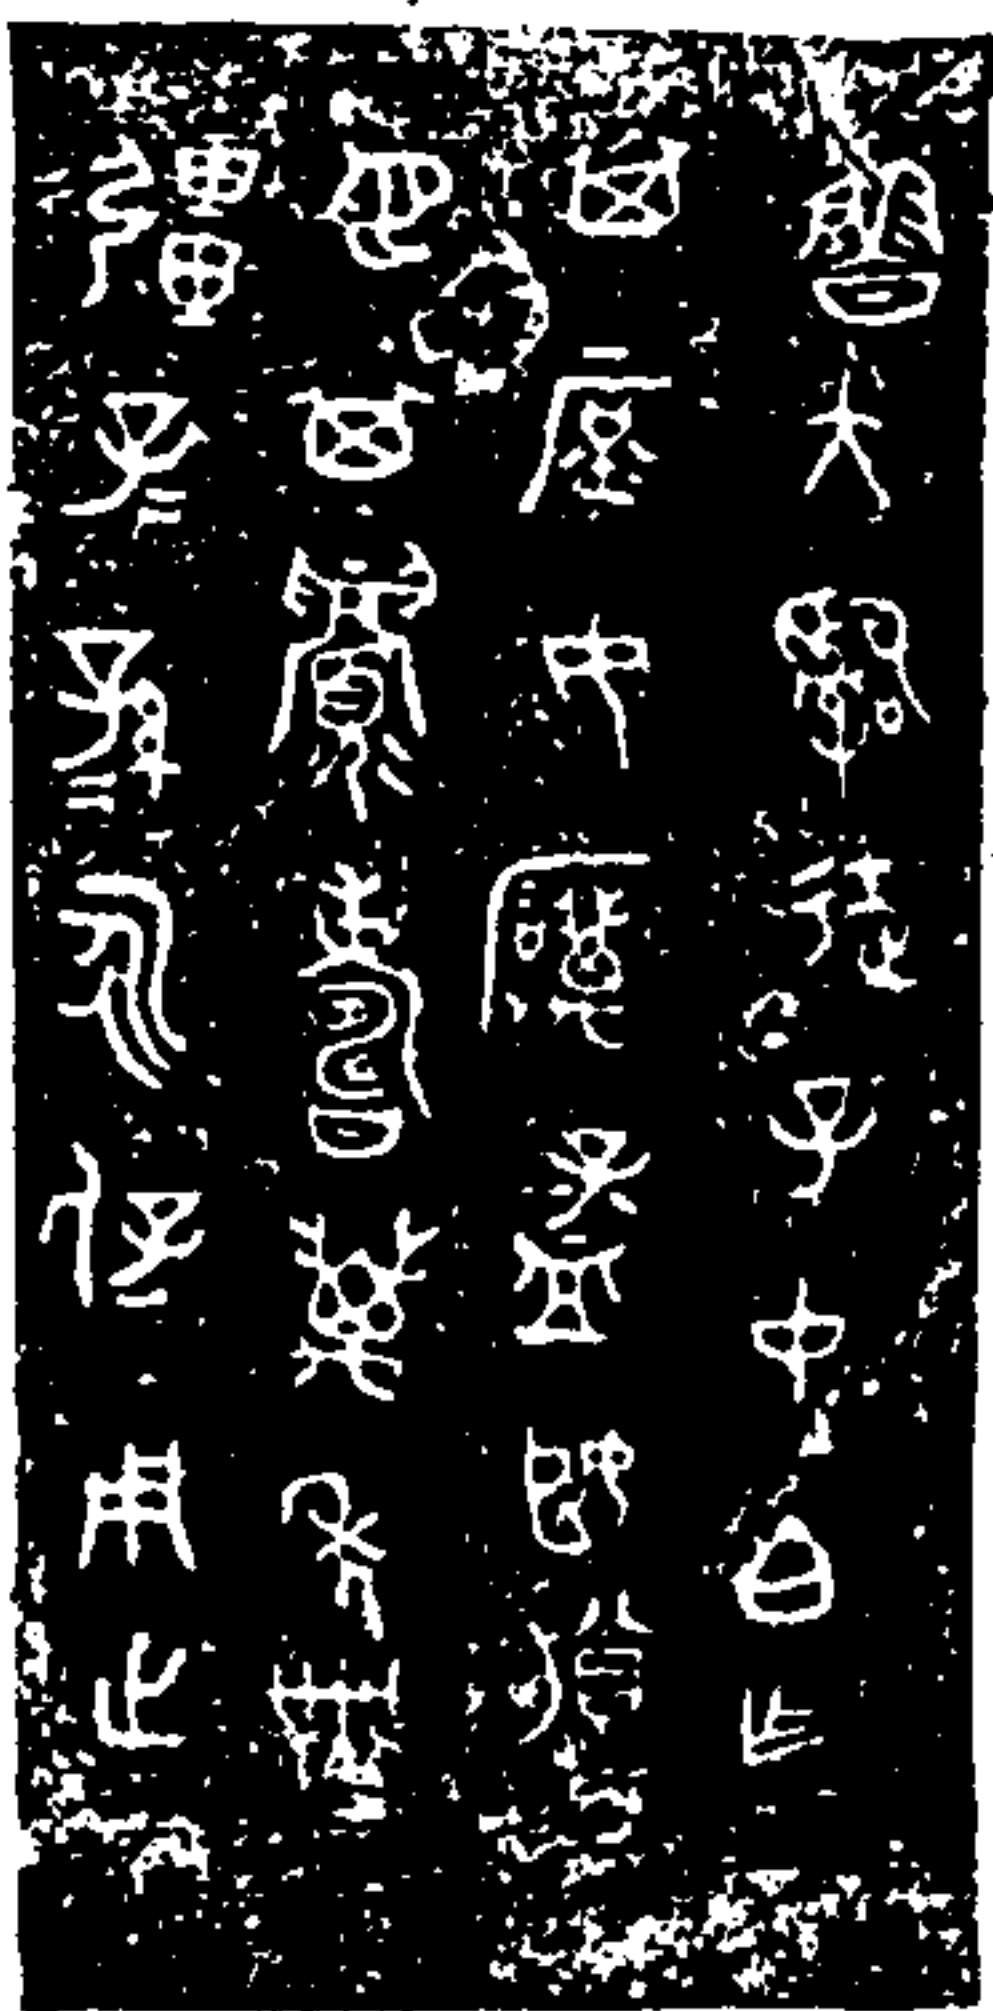 魯大𤔲徒子中白乍
其庶女厲孟姬媵
它其眉壽萬年無
彊子=孫=永保用之